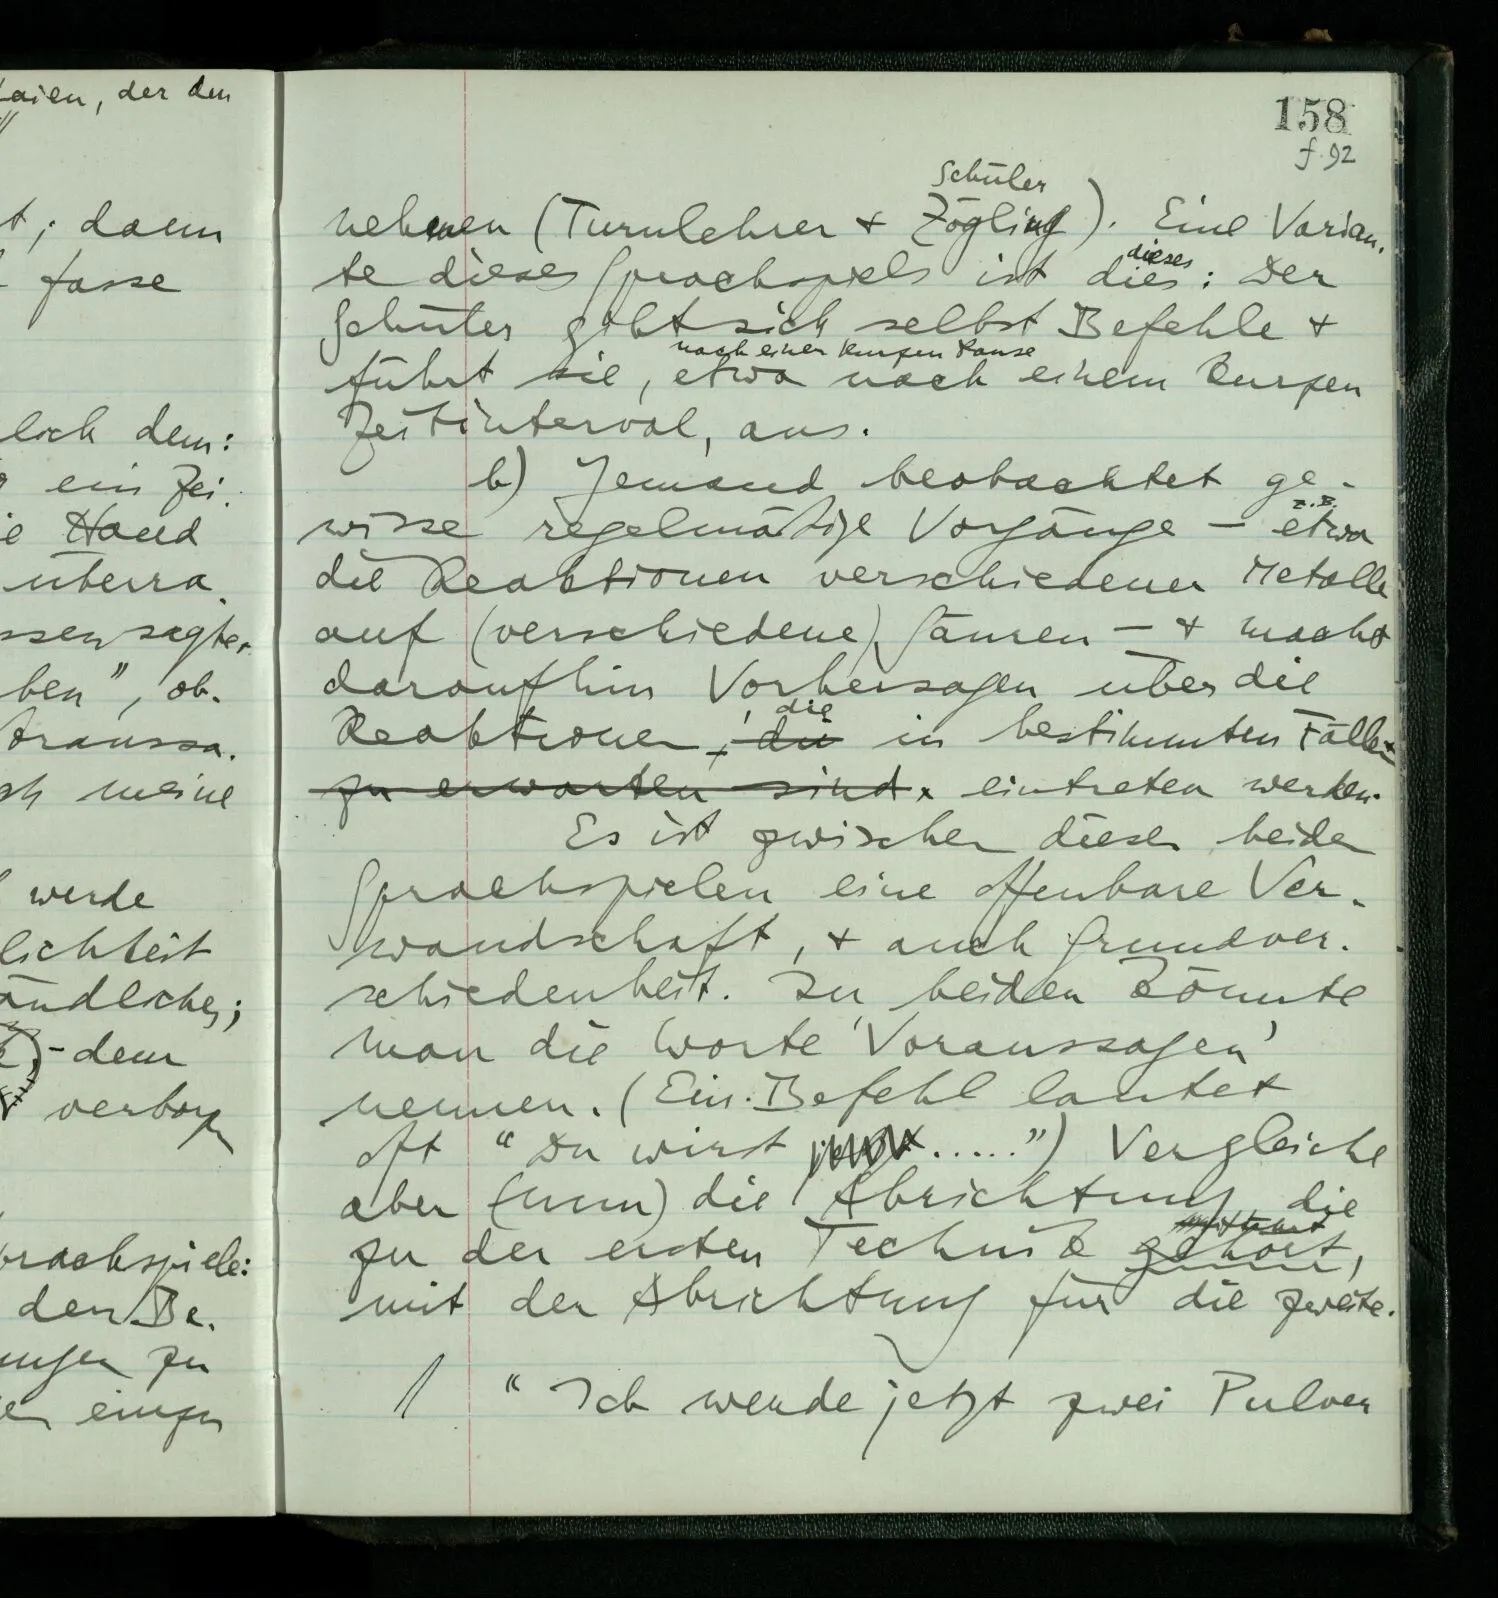 aien, der den
t; dann
fasse
lich dem:
ein Zei.
e Hand
überra.
ssen sagte.
ben", ob.
oraussa.
ch meine
werde
lichkeit
ändliches;
- dem
verborg
prachspiele:
den Be.
ungen zu
en einzu
158
f. 92
Schüler
nehmen (Turnlehrer & Zögling). Eine Varian.
dieses
te dieses Sprachspiels ist dies: Der
Schüler gibt sich selbst Befehle &
nach einer kurzen Pause
führt sie, etwa nach einem kurzen
Zeitinterval, aus.
b) Jemand beobachtet ge-
z.B.
wisse regelmäßige Vorgänge – etwa
die Reaktionen verschiedener Metalle
auf (verschiedene) Säuren – & macht
daraufhin Vorhersagen über die
die
Reaktionen, die in bestimmten Fällen
zu erwarten sind. eintreten werden.
Es ist zwischen diesen beiden
Sprachspielen eine offenbare Ver-
wandschaft, & auch Grundver.
schiedenheit. In beiden könnte
man die Worte 'Voraussagen'
nennen. (Ein Befehl lautet
oft "Du wirst .....") Vergleiche
aber (nun) die Abrichtung die
zu der ersten Technik gehört,
mit der Abrichtung für die zweite.
/ "Ich werde jetzt zwei Pulver